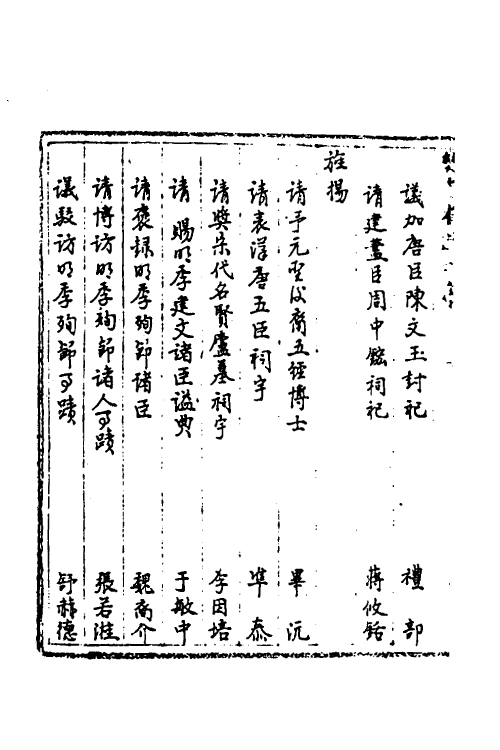 議加唐臣陳文玉封祀　禮部
請建藎臣周中鋐祠祀　蔣攸銛
旌揚
請予元聖後裔五經博士　畢沅
請表漢唐五臣祠宇　準泰
請興宋代名賢廬墓祠宇　李因培
請賜明季建文諸臣諡典　于敏中
請褒錄明季殉節諸臣　魏裔介
請博訪明季殉節諸人事蹟　張若溎
議駁訪明季殉節事蹟　舒赫德